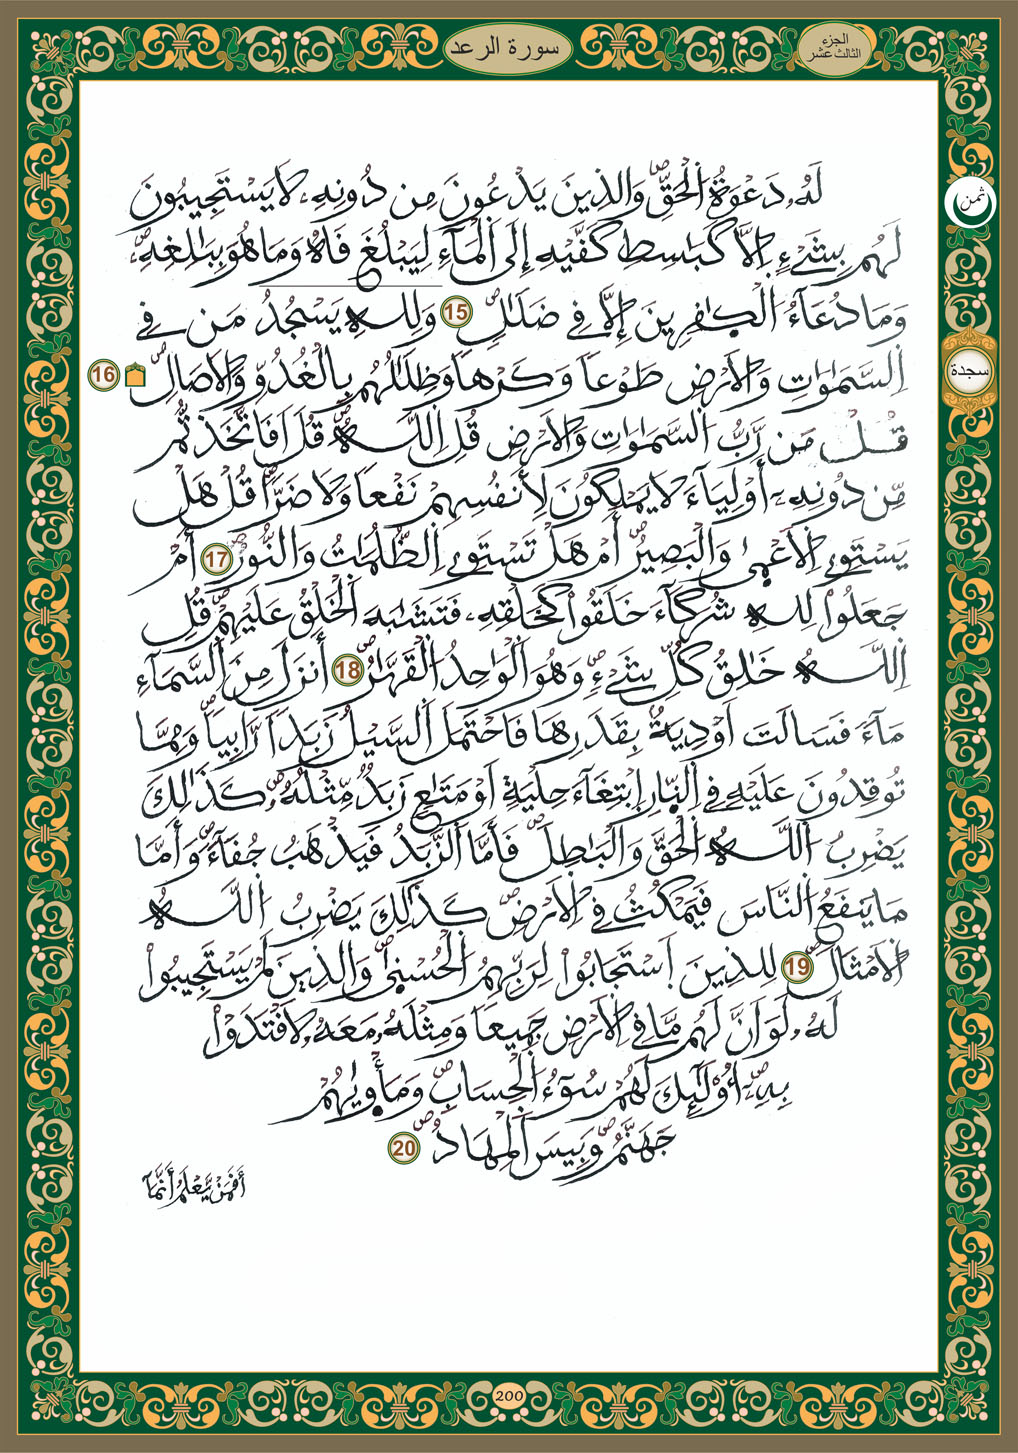 سورة الرعد
الجزء
الثالث عشر
ثمن
لَهُۥ دَعْوَةُ الْحَقِّ وَالذِينَ يَدْعُونَ مِن دُونِهِۦ لَا يَسْتَجِيبُونَ
لَهُم بِشَےْءٍ اِلَّا كَبَٰسِطِ كَفَّيْهِ إِلَى اَلْمَآءِ لِيَبْلُغَ فَاهُ وَمَا هُوَ بِبَٰلِغِهِۦ
وَمَا دُعَآءُ الْكٰ۪فِرِينَ إِلَّا فِے ضَلَٰلٍ 15 وَلِلهِ يَسْجُدُ مَن فِے
سجدة
اِ۬لسَّمَٰوَٰتِ وَالَارْضِ طَوْعاً وَكَرْهاً وَظِلَٰلُهُم بِالْغُدُوِّ وَالَاصَالِ 16
قُلْ مَن رَّبُّ اُ۬لسَّمَٰوَٰتِ وَالَارْضِ قُلِ اِ۬للَّهُ قُلَ اَفَاتَّخَذتُّم
مِّن دُونِهِۦٓ أَوْلِيَآءَ لَا يَمْلِكُونَ لِأَنفُسِهِمْ نَفْعاً وَلَا ضَرّاً قُلْ هَلْ
يَسْتَوِے اِ۬لَاعْم۪يٰ وَالْبَصِيرُ أَمْ هَلْ تَسْتَوِے اِ۬لظُّلُمَٰتُ وَالنُّورُ 17 أَمْ
جَعَلُواْ لِلهِ شُرَكَآءَ خَلَقُواْ كَخَلْقِهِۦ فَتَشَٰبَهَ اَ۬لْخَلْقُ عَلَيْهِمْ قُلِ
اِ۬للَّهُ خَٰلِقُ كُلِّ شَےْءٍ وَهُوَ اَ۬لْوَٰحِدُ اُ۬لْقَهَّٰرُ 18 أَنزَلَ مِنَ اَ۬لسَّمَآءِ
مَآءً فَسَالَتَ اَوْدِيَةُۢ بِقَدَرِهَا فَاحْتَمَلَ اَ۬لسَّيْلُ زَبَداً رَّابِياً وَمِمَّا
تُوقِدُونَ عَلَيْهِ فِے اِ۬لنّ۪ارِ اِ۪بْتِغَآءَ حِلْيَةٍ اَوْ مَتَٰعٍ زَبَدٌ مِّثْلُهُۥ كَذَٰلِكَ
يَضْرِبُ اُ۬للَّهُ اُ۬لْحَقَّ وَالْبَٰطِلَ فَأَمَّا اَ۬لزَّبَدُ فَيَذْهَبُ جُفَآءً وَأَمَّا
مَا يَنفَعُ اُ۬لنَّاسَ فَيَمْكُثُ فِے اِ۬لَارْضِ كَذَٰلِكَ يَضْرِبُ اُ۬للَّهُ
اُ۬لَامْثَالَ 19 لِلذِينَ اَ۪سْتَجَابُواْ لِرَبِّهِمُ اُ۬لْحُسْن۪يٰ وَالذِينَ لَمْ يَسْتَجِيبُواْ
لَهُۥ لَوَ اَنَّ لَهُم مَّا فِے اِ۬لَارْضِ جَمِيعاً وَمِثْلَهُۥ مَعَهُۥ لَافْتَدَوْاْ
بِهِۦٓ أُوْلَٰٓئِكَ لَهُمْ سُوٓءُ اُ۬لْحِسَابِ وَمَأْو۪يٰهُمْ
جَهَنَّمُ وَبِيسَ اَ۬لْمِهَادُ 20
أَفَمَنْ يَّعْلَمُ أَنَّمَآ
200